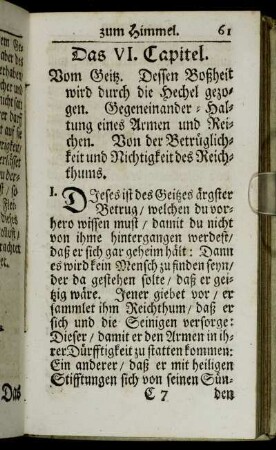 zum Himmel. 61
Das VI. Capitel.
Vom Geitz. Dessen Boßheit
wird durch die Hechel gezo-
gen. Gegeneinander-Hal-
tung eines Armen und Rei-
chen. Von der Betrüglich-
keit und Nichtigkeit des Reich-
thums.
I. DIeses ist des Geitzes ärgster
Betrug / welchen du vor-
hero wissen must / damit du nicht
von ihme hintergangen werdest /
daß er sich gar geheim hält: Dann
es wird kein Mensch zu finden seyn /
der da gestehen solte / daß er gei-
tzig wäre. Jener giebet vor / er
sammlet ihm Reichthum / daß er
sich und die Seinigen versorge:
Dieser / damit er den Armen in ih-
rer Dürfftigkeit zu statten kommen:
Ein anderer / daß er mit heiligen
Stifftungen sich von seinen Sün-
C 7 den
Das